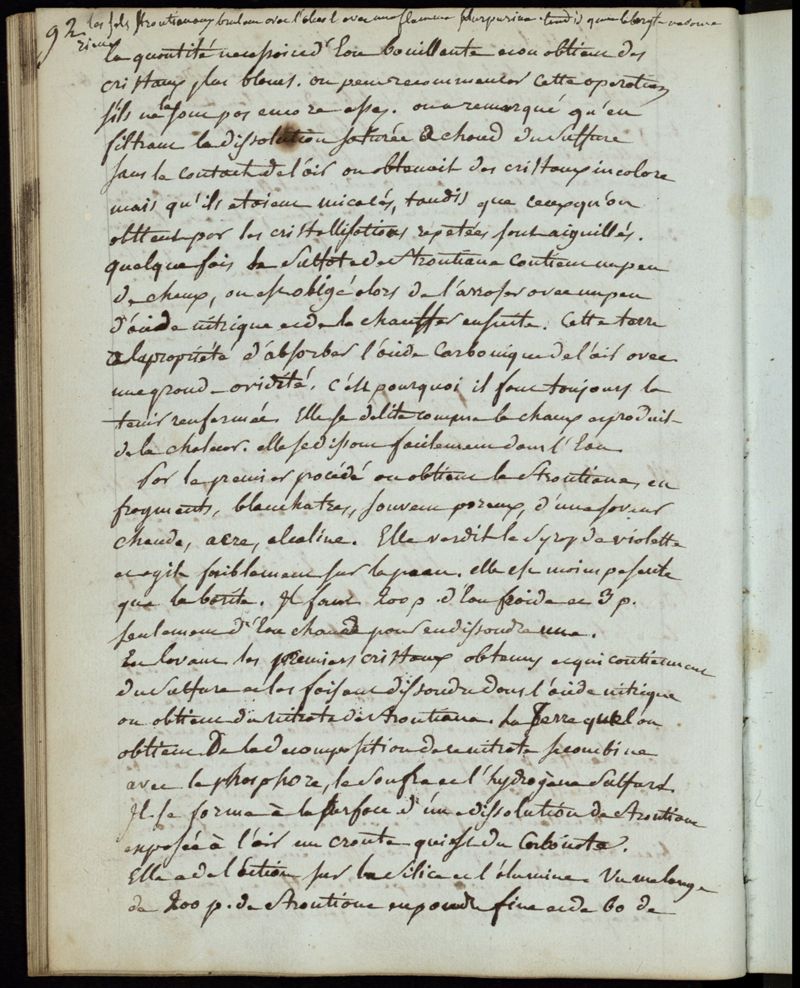 92 les sels strontianeux brulent avec l'alcool avec une flamme purpurine tandis que la baryte ne donne
rien
la quantité necessaire d'Eau bouillante et on obtient des
cristaux plus blancs. on peut recommencer cette operation
s'ils ne le sont pas encore assez. on a remarqué qu'en
filtrant la dissolution saturée à chaud du sulfure
sans le contact de l'air on obtenait des cristaux incolore
mais qu'ils etoient micacés, tandis que ceux qu'on
obtient par les cristallisations repetées sont aiguillés.
quelque fois le sulfate de strontiane contient un peu
de chaux, on est obligé alors de l'arroser avec un peu
d'acide nitrique et de le chauffer ensuite. Cette terre
a la propriété d'absorber l'acide Carbonique de l'air avec
une grande avidité. c'est pourquoi il faut toujours la
tenir renfermée. Elle se delite comme la chaux et produit
de la chaleur. elle se dissout facilement dans l'Eau
Par le premier procédé on obtient la strontiane, en
fragments, blanchatres, souvent poreux, d'une saveur
chaude, acre, alcaline. Elle verdit le syrop de violette
et agit faiblement sur la peau. elle est moins pesante
que la barite. Il faut 200 p. d'Eau froide et 3 p.
seulement d'Eau chaude pour en dissoudre une.
En lavant les premiers cristaux obtenus et qui contiennent
du sulfure et les faisant dissoudre dans l'acide nitrique
on obtient du nitrate de strontiane. La Terre que l'on
obtient De la decomposition de ce nitrate se combine
avec le phosphore, le soufre et l'hydrogène sulfuré.
Il se forme à la surface d'une dissolution de strontiane
exposée à l'air une croute qui est du Carbonate.
Elle a de l'action sur la silice et l'alumine. Un melange
de 200 p. de strontiane en poudre fine et de 60 de